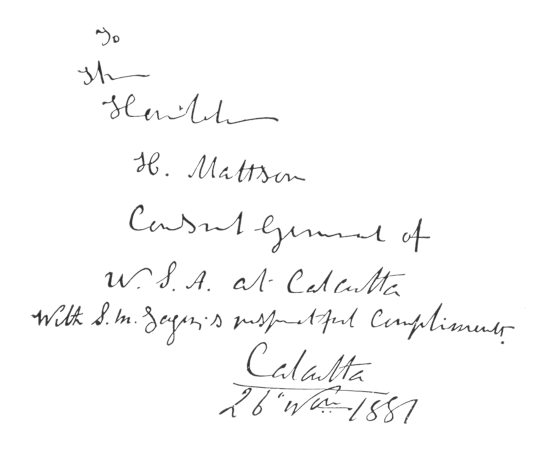 To
The
Honible
H. Mattson
Consul General of
U. S. A. at Calcutta
With S. M. Tagore's respectful Compliments.
Calcutta
26" 1881